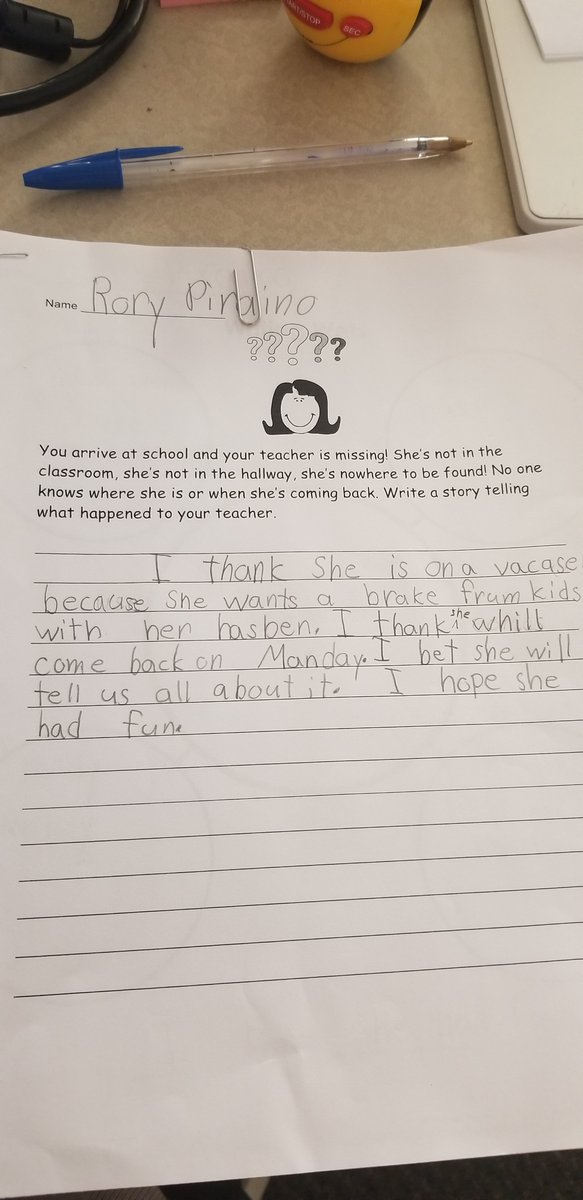 START/STOP
SEC
Name Rory Piraino
?????
You arrive at school and your teacher is missing! She's not in the
classroom, she's not in the hallway, she's nowhere to be found! No one
knows where she is or when she's coming back. Write a story telling
what happened to your teacher.
I thank She is on a vacase
because She wants a brake frum kids
with her hasben. I thank she whill
come back on Manday. I bet she will
tell us all about it. I hope she
had fun.